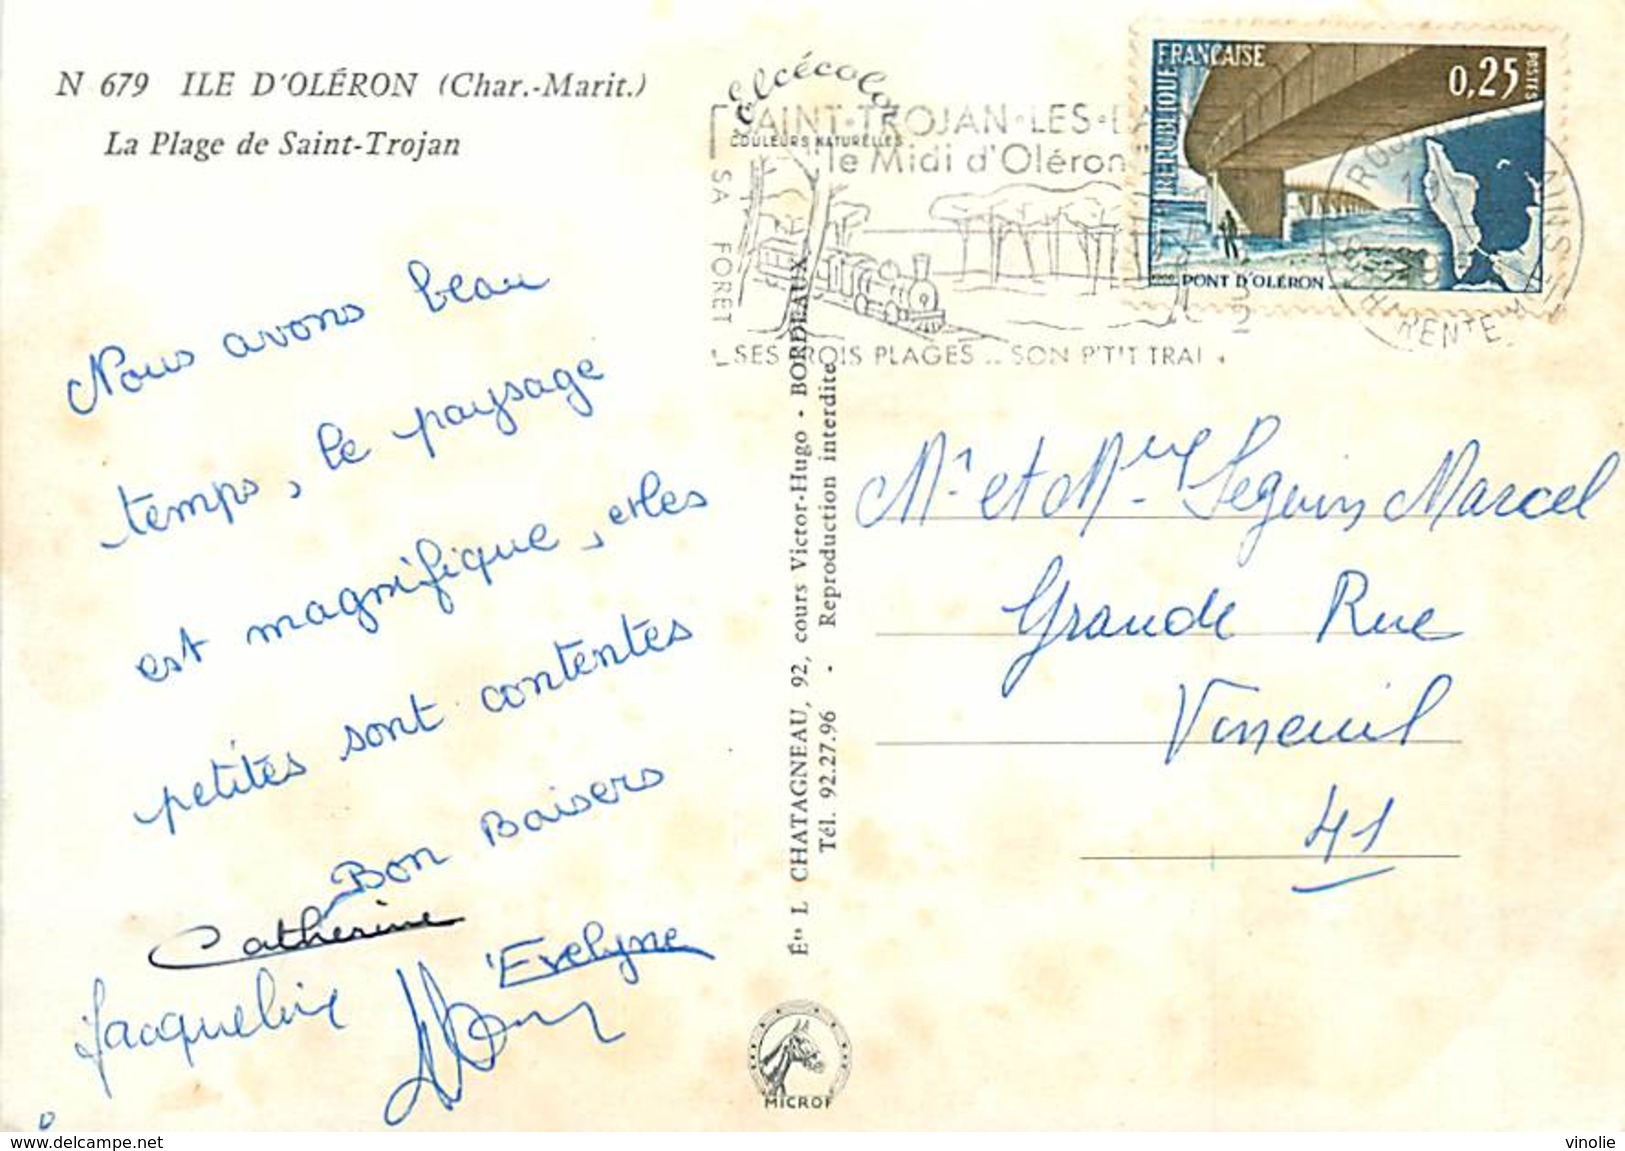 N 679 ILE D'OLÉRON (Char.-Marit.)
La Plage de Saint-Trojan
Nous avons beau
temps, le paysage
est magnifique, et les
petites sont contentes
Bon Baisers
Catherine
Evelyne
Jacqueline
Elcécolor
COULEURS NATURELLES
SAINT-TROJAN-LES-BAINS
"le Midi d'Oléron"
SA FORÊT
SES TROIS PLAGES .. SON P'TIT TRAIN
RÉPUBLIQUE FRANÇAISE
0,25
POSTES
PONT D'OLÉRON
L CHATAGNEAU, 92, cours Victor-Hugo - BORDEAUX
Tél. 92.27.96 - Reproduction interdite
Mr et Mme Seguin Marcel
Grande Rue
Vineuil
41
MICROF
www.delcampe.net
vinolie